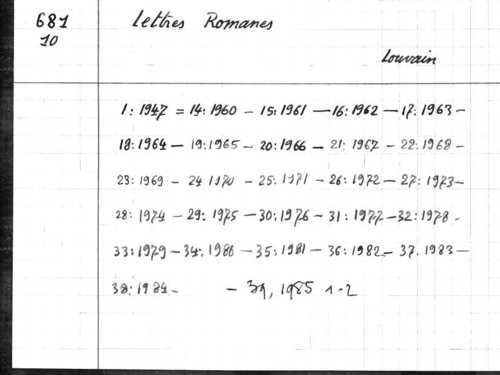 681 Lettres Romanes
10
Louvain
1: 1947 = 14: 1960 - 15: 1961 - 16: 1962 - 17: 1963 -
18: 1964 - 19: 1965 - 20: 1966 - 21: 1967 - 22: 1968 -
23: 1969 - 24 1970 - 25: 1971 - 26: 1972 - 27: 1973 -
28: 1974 - 29: 1975 - 30: 1976 - 31: 1977 - 32: 1978 -
33: 1979 - 34: 1980 - 35: 1981 - 36: 1982 - 37. 1983 -
38: 1984 - - 39, 1985 1-2